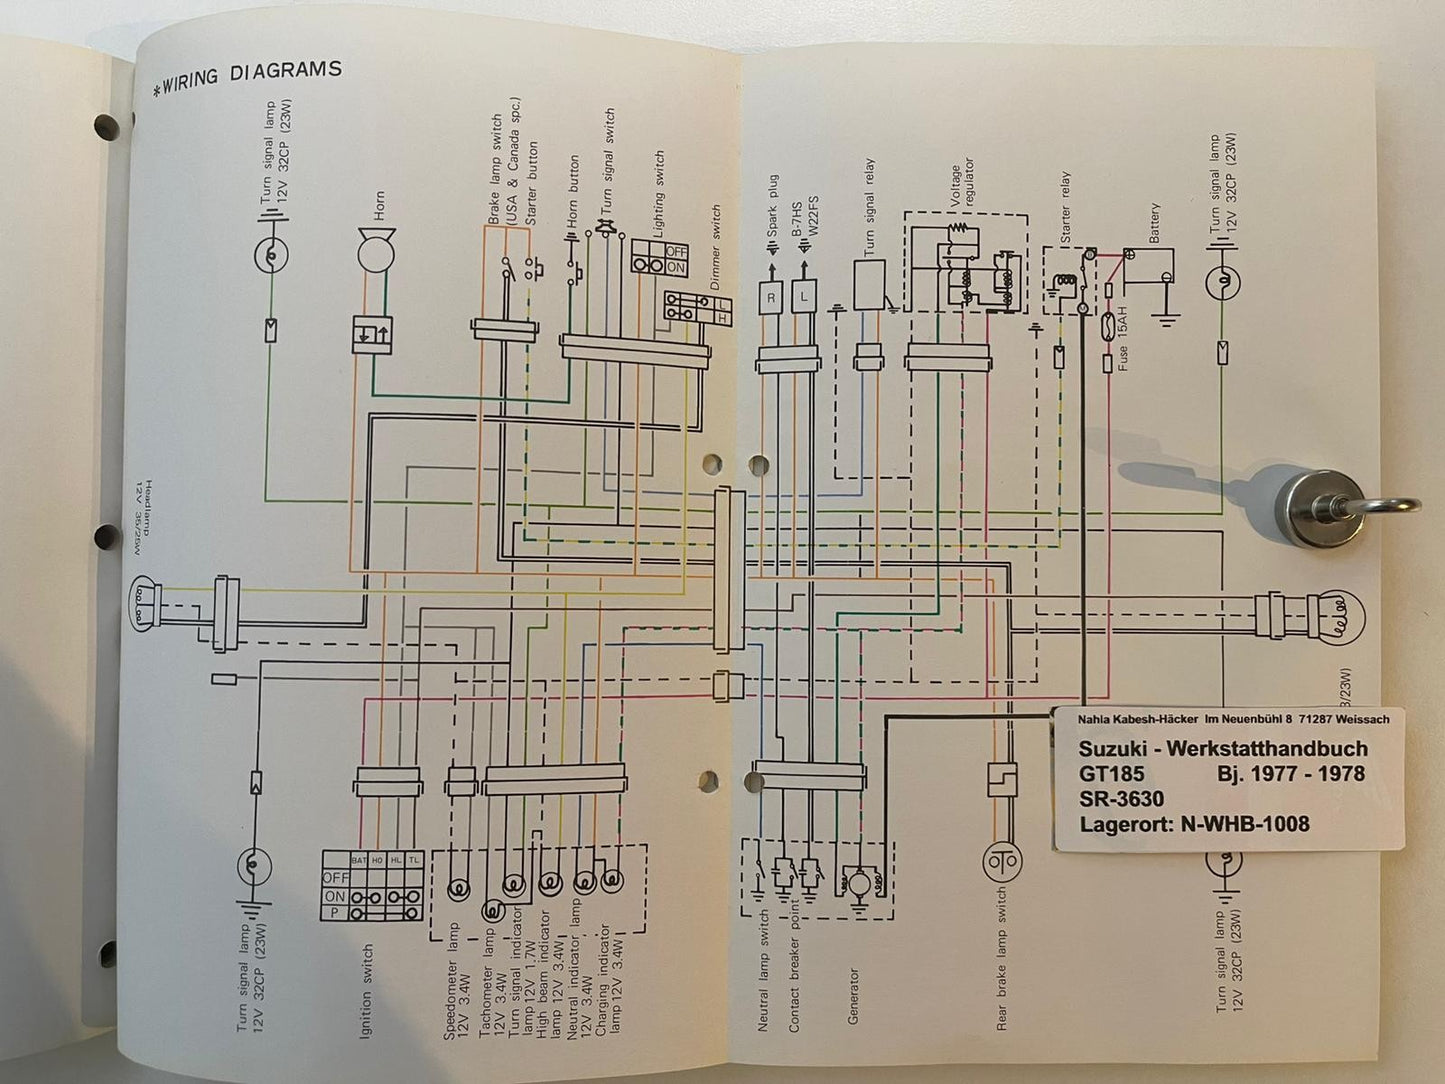 *WIRING DIAGRAMS
Turn signal lamp
12V 32CP (23W)
Horn
Brake lamp switch
(USA & Canada spc.)
Starter button
Horn button
Turn signal switch
Lighting switch
OFF
ON
Dimmer switch
L
H
Spark plug
B-7HS
W22FS
R
L
Turn signal relay
Voltage
regulator
Starter relay
Battery
Fuse 15AH
Turn signal lamp
12V 32CP (23W)
Headlamp
12V 35/25W
Turn signal lamp
12V 32CP (23W)
BAT HO HL TL
OFF
ON
P
Ignition switch
Speedometer lamp
12V 3.4W
Tachometer lamp
12V 3.4W
Turn signal indicator
lamp 12V 1.7W
High beam indicator
lamp 12V 3.4W
Neutral indicator lamp
12V 3.4W
Charging indicator
lamp 12V 3.4W
Neutral lamp switch
Contact breaker point
Generator
Rear brake lamp switch
Turn signal lamp
12V 32CP (23W)
/23W)
Nahla Kabesh-Häcker Im Neuenbühl 8 71287 Weissach
Suzuki - Werkstatthandbuch
GT185 Bj. 1977 - 1978
SR-3630
Lagerort: N-WHB-1008